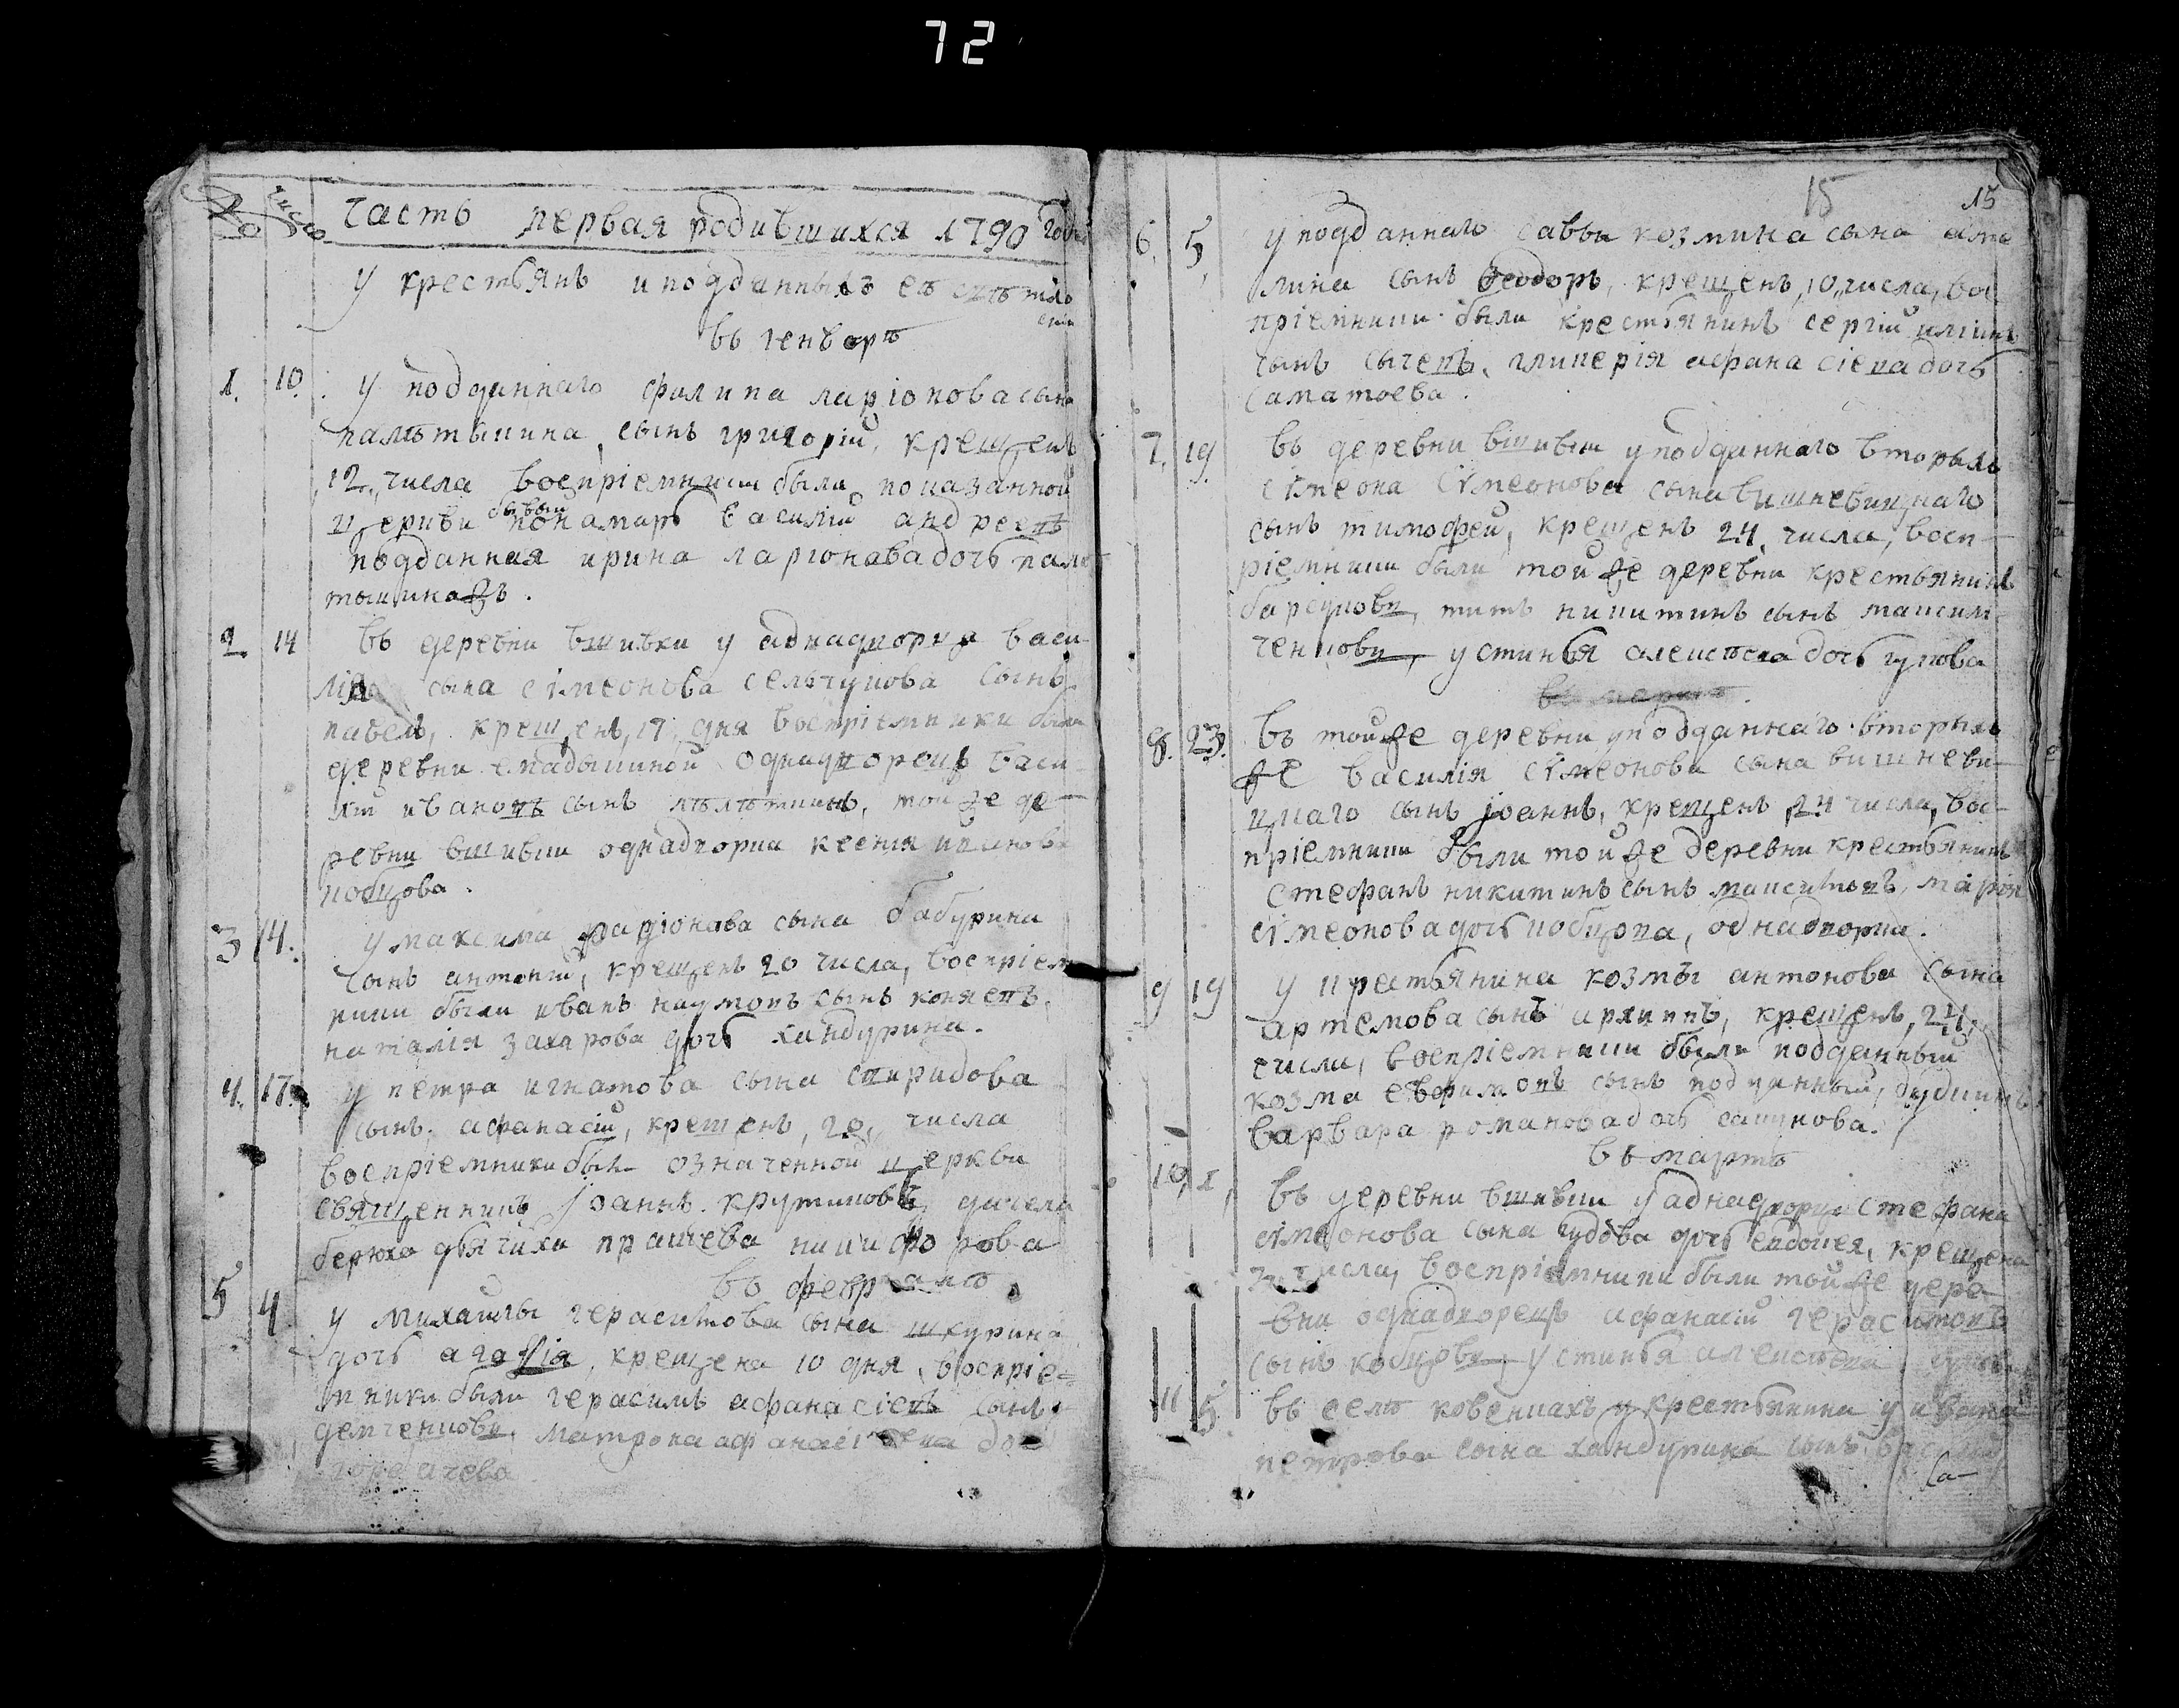 72
№
число
часть первая родившихся 1790 года
у крестьянъ и подданныхъ его
въ генварѣ
1. 10. у подданнаго филипа ларіонова сына
сынъ григорій, крещенъ
12, числа воспріемники были показанной
церкви бывый понамарь василий андреевъ
подданная ирина ларіонова дочь
2. 14 въ деревни вшивки у аднадворца васи-
лія сына сімеонова селчукова сынъ
павелъ, крещенъ, 17, дня воспріемники были
деревни однадворецъ васи-
лій ивановъ сынъ той же де-
ревни вшивки однадворка ксенія
кобцова.
3 14. у максима радіонова сына бабурина
сынъ антоній, крещенъ 20 числа, воспріем
ники были иванъ наумовъ сынъ коняевъ,
наталія захарова дочь хандурина.
4. 17. у петра игнатова сына спиридова
сынъ афанасій, крещенъ, 20, числа
воспріемники были означенной церкви
священникъ іоаннъ крутиковъ,
дьячиха никифорова
въ февралѣ
5 4 у михаилы герасимова сына шкурина
дочь агафія, крещена 10 дня, воспріе=
мники были герасимъ афанасіевъ сынъ
демченковъ, матрона афанасіева доч

15
15
6, 5, у подданнаго саввы козмина сына
лина сынъ феодоръ, крещенъ, 10, числа, вос
пріемники были крестьянинъ сергій
сынъ сычевъ, гликерія афанасіева дочь
саматоева.
7, 19 въ деревни вшивки у подданнаго вторыхъ
сімеона сімеонова сына вишневицкаго
сынъ тимофей, крещенъ 24, числа, восп-
ріемники были той же деревни крестьянинъ
титъ никитинъ сынъ максим-
ченковъ, устинья алексѣева дочь
въ мартѣ
8. 23. въ той же деревни у подданнаго вторыхъ
же василія сімеонова сына вишневи-
цкаго сынъ іоаннъ, крещенъ 24 числа, вос-
пріемники были той же деревни крестьянинъ
стефанъ никитинъ сынъ марія
сімеонова дочь кобцова, однадворка.
9 19 у крестьянина козмы антонова сына
артемова сынъ архипъ, крещенъ, 24,
числа, воспріемники были подданный
козма евфимовъ сынъ подданный,
варвара романова дочь сашунова.
въ мартѣ
10, 1, въ деревни вшивки у аднадворца стефана
сімеонова сына гудова дочь евдокея, крещена
3, числа, воспріемники были той же дере-
вни однадворецъ афанасій герасимовъ
сынъ кобцовъ, устинья алексѣева
11 5. въ селѣ ковенкахъ у крестьянина у ивана
петрова сына хандурина сынъ
са-